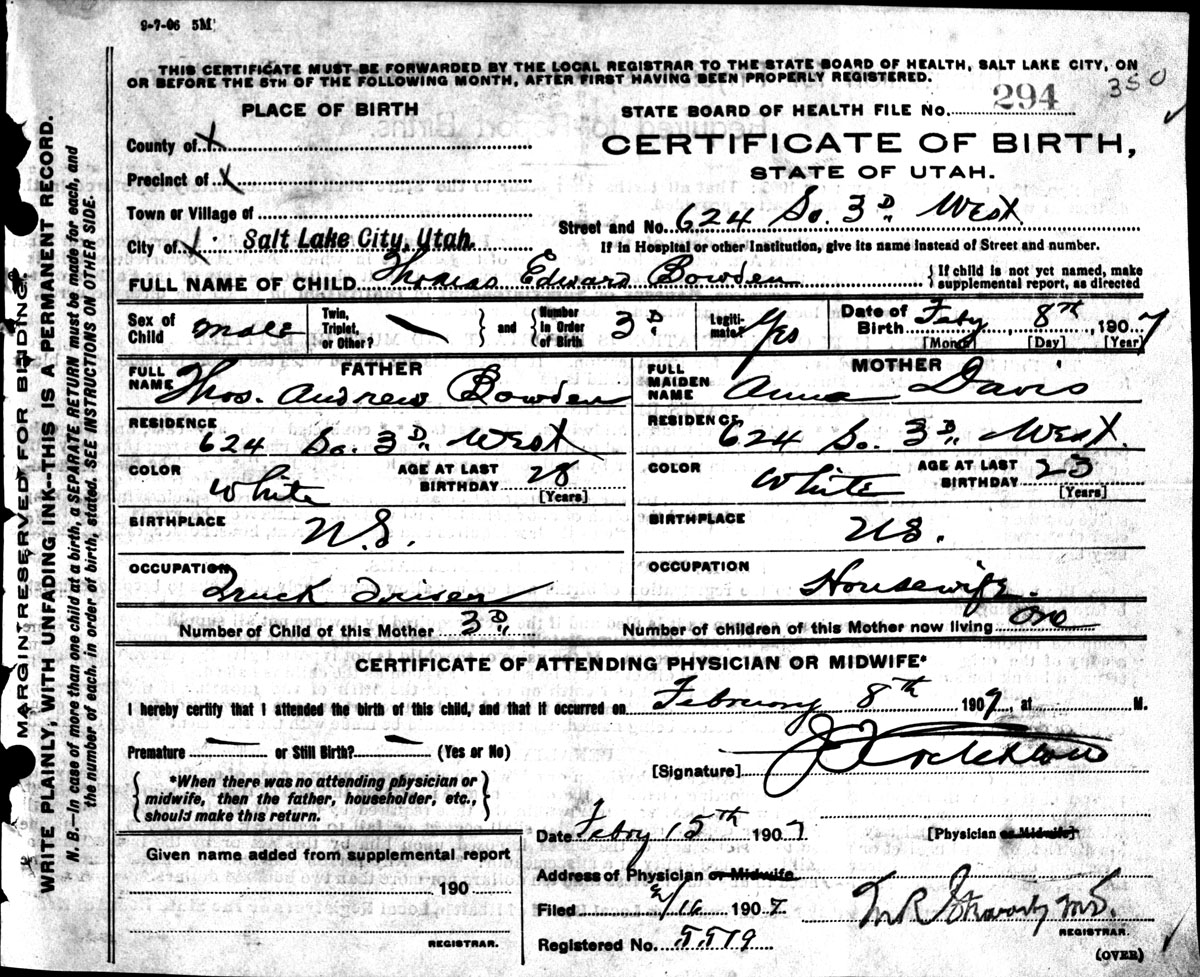 9-7-06 5M
THIS CERTIFICATE MUST BE FORWARDED BY THE LOCAL REGISTRAR TO THE STATE BOARD OF HEALTH, SALT LAKE CITY, ON
OR BEFORE THE 5TH OF THE FOLLOWING MONTH, AFTER FIRST HAVING BEEN PROPERLY REGISTERED.
350
PLACE OF BIRTH
STATE BOARD OF HEALTH FILE No. 294
County of X
CERTIFICATE OF BIRTH,
Precinct of X
STATE OF UTAH.
Town or Village of
Street and No. 624 So. 3D West
City of X Salt Lake City, Utah.
If in Hospital or other Institution, give its name instead of Street and number.
FULL NAME OF CHILD Thomas Edward Bowden
{ If child is not yet named, make supplemental report, as directed
Sex of Child male
Twin, Triplet, or Other?
} and { Number in Order of Birth 3D
Legitimate? Yes
Date of Birth Feby, 8th, 1907
[Month] [Day] [Year]
FATHER
MOTHER
FULL NAME Thos. Andrew Bowden
FULL MAIDEN NAME Anna Davis
RESIDENCE 624 So. 3D West
RESIDENCE 624 So. 3D West.
COLOR White AGE AT LAST BIRTHDAY 28 [Years]
COLOR White AGE AT LAST BIRTHDAY 23 [Years]
BIRTHPLACE U.S.
BIRTHPLACE U.S.
OCCUPATION Truck Driver
OCCUPATION Housewife.
Number of Child of this Mother 3D
Number of children of this Mother now living
CERTIFICATE OF ATTENDING PHYSICIAN OR MIDWIFE*
I hereby certify that I attended the birth of this child, and that it occurred on February 8th 1907, at M.
Premature or Still Birth? (Yes or No)
[Signature]
{ *When there was no attending physician or midwife, then the father, householder, etc., should make this return. }
Date Febry 15th 1907
[Physician or Midwife]
Given name added from supplemental report
190
Address of Physician or Midwife
Filed 2/16 1907
REGISTRAR.
Registered No. 5519
M.D.
REGISTRAR.
(OVER)
MARGIN RESERVED FOR BINDING.
WRITE PLAINLY, WITH UNFADING INK--THIS IS A PERMANENT RECORD.
N. B.--In case of more than one child at a birth, a SEPARATE RETURN must be made for each, and
the number of each, in order of birth, stated. SEE INSTRUCTIONS ON OTHER SIDE.